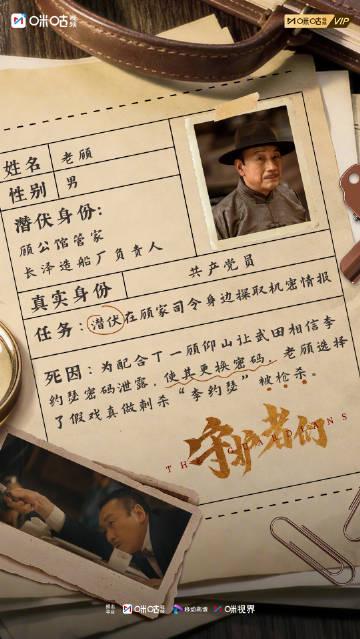 咪咕视频
咪咕视频 VIP
姓名 老顾
性别 男
潜伏身份:
顾公馆管家
长泽造船厂负责人
真实身份 共产党员
任务:潜伏在顾家司令身边探取机密情报
死因:为配合丁一顾仰山让武田相信李
约瑟密码泄露,使其更换密码,老顾选择
了假戏真做刺杀“李约瑟”被枪杀。
守护者们
THE GUARDIANS
咪咕视频 移动高清 咪视界